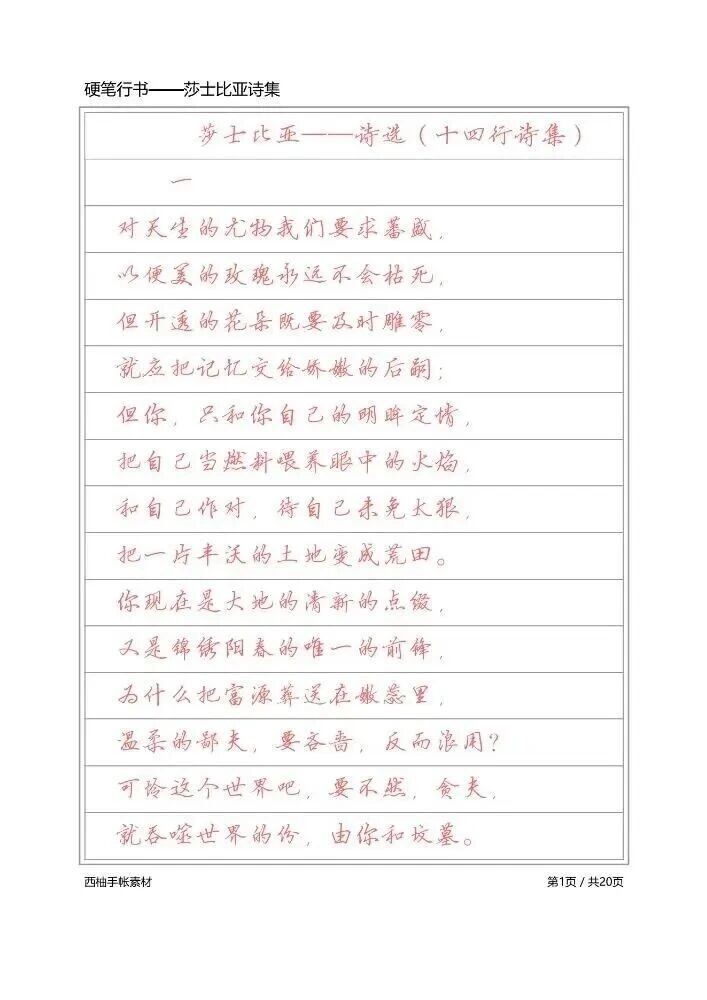 硬笔行书——莎士比亚诗集
莎士比亚——诗选（十四行诗集）
一
对天生的尤物我们要求蕃盛，
以便美的玫瑰永远不会枯死，
但开透的花朵既要及时雕零，
就应把记忆交给娇嫩的后嗣；
但你，只和你自己的明眸定情，
把自己当燃料喂养眼中的火焰，
和自己作对，待自己未免太狠，
把一片丰沃的土地变成荒田。
你现在是大地的清新的点缀，
又是锦绣阳春的唯一的前锋，
为什么把富源葬送在嫩蕊里，
温柔的鄙夫，要吝啬，反而浪用？
可怜这个世界吧，要不然，贪夫，
就吞噬世界的份，由你和坟墓。
西柚手帐素材
第1页 / 共20页